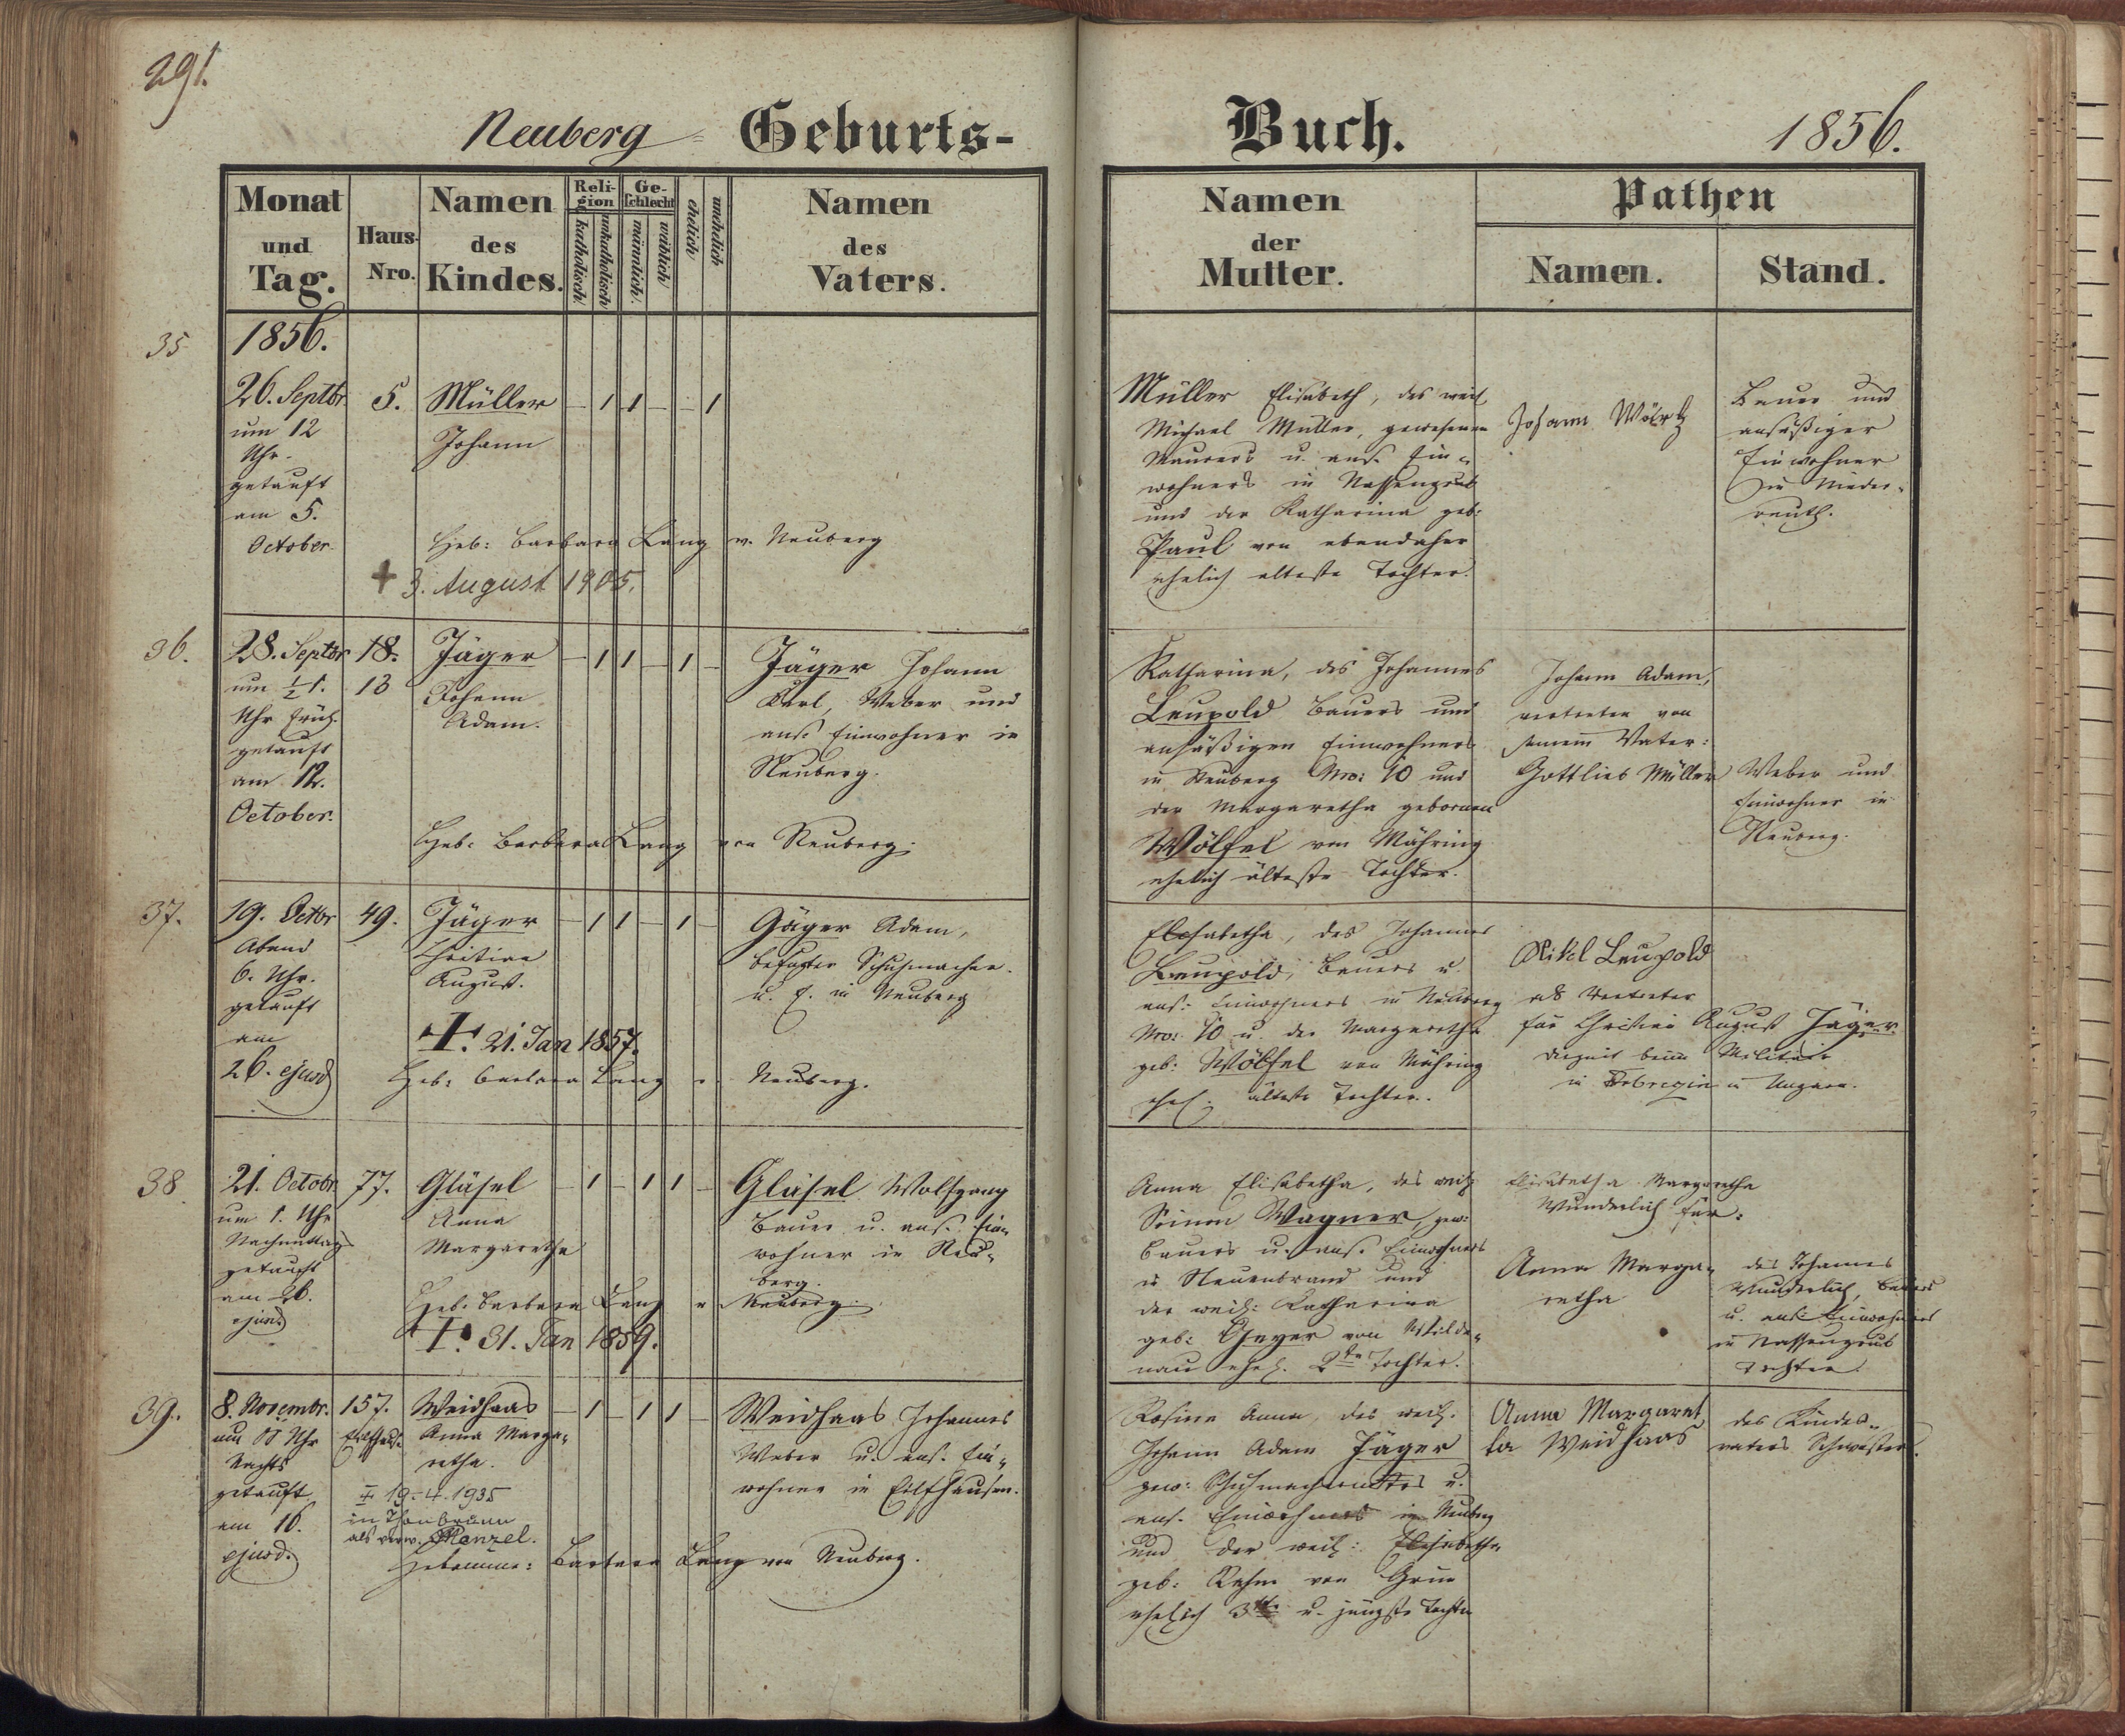 291.
Neuberg Geburts-Buch. 1856.
Monat und Tag.
Haus-Nro.
Namen des Kindes.
Religion
katholisch
unkatholisch
Geschlecht
männlich
weiblich
ehelich
unehelich
Namen des Vaters.
Namen der Mutter.
Pathen
Namen.
Stand.
35
1856.
26. Septbr.
um 12
Uhr.
getauft
am 5.
October.
5.
Müller
Johann
– 1 1 – – 1
Heb: Barbara Lang v. Neuberg
+ 3. August 1905.
Müller Elisabeth, des weil.
Michael Müller, gewesenen
Maurers u. ans. Ein-
wohners in Nassengrub
und der Katharina geb:
Paul von ebendaher
ehelich älteste Tochter.
Johann
Bauer und
ansäßiger
Einwohner
in Nieder-
reuth.
36.
28. Septbr
um ½ 1.
Uhr früh.
getauft
am 12.
October.
18.
13
Jäger
Johann
Adam.
– 1 1 – 1 –
Jäger Johann
Karl, Weber und
ans. Einwohner in
Neuberg.
Heb: Barbara Lang von Neuberg.
Katharina, des Johannes
Leupold Bauers und
ansäßigen Einwohners
in Neuberg Nro: 10 und
der Margaretha gebornen
Wölfel von Mähring
ehelich älteste Tochter.
Johann Adam,
vertreten von
seinem Vater:
Gottlieb Müller
Weber und
Einwohner in
Neuberg.
37.
19. Octbr
Abend
6. Uhr.
getauft
am
26. ejusd
49.
Jäger
Christian
August.
– 1 1 – 1 –
+. 21. Jan 1857.
Heb: Barbara Lang v. Neuberg.
Jäger Adam,
befugter Schuhmacher.
u. E. in Neuberg
Elisabetha, des Johannes
Leupold, Bauers u.
ans: Einwohners in Neuberg
Nro: 10 u. der Margaretha
geb: Wölfel von Mähring
ehel. älteste Tochter.
Nikol Leupold
als Vertreter
für Christian August Jäger
derzeit beim Militair
in Debrezin in Ungarn.
38.
21. Octobr
um 1. Uhr
Nachmittag
getauft
am 26.
ejusd
77.
Gläsel
Anna
Margaretha
– 1 – 1 1 –
Heb. Barbara Lang v Neuberg.
+. 31. Jan 1859.
Gläsel Wolfgang
Bauer u. ans. Ein-
wohner in Neu-
berg.
Anna Elisabetha, des weil.
Simon Wagner, gew:
Bauers u. ans. Einwohners
in Neuenbrand und
der weil: Katharina
geb: Geyer von Wilde-
nau ehel. 2te Tochter.
Elisabetha Margaretha
Wunderlich für:
Anna Marga-
retha
des Johannes
Wunderlich, Bauers
u. ans. Einwohners
in Nassengrub
Tochter.
39.
8. Novembr.
um Uhr
Nachts
getauft
am 16.
ejusd.
157.
Weidhaas
Anna Marga-
retha.
– 1 – 1 1 –
+ 19.4.1935
in Thonbrunn
als verw. Menzel.
Hebamme: Barbara Lang von Neuberg.
Weidhaas Johannes
Weber u. ans. Ein-
wohner in Eilfhausen.
Rosina Anna, des weil.
Johann Adam Jäger
gew: Schuhmachermstrs u.
ans. Einwohners in Neuberg
und der weil: Elisabetha
geb: von Grün
ehelich 3te u. jüngste Tochter
Anna Margaret
ta Weidhaas
des Kindes-
vaters Schwester.